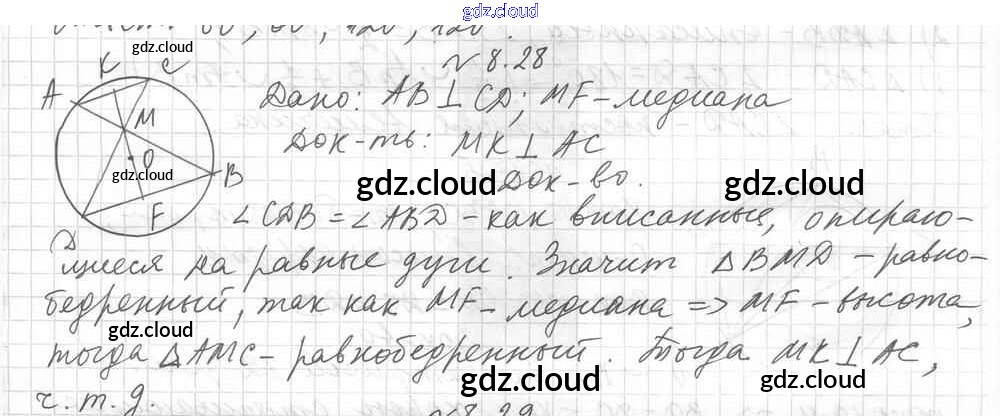 gdz.cloud
60°, 60°, 120°, 120°.
N 8.28
gdz.cloud
K C
A
M
O
B
F
D
gdz.cloud
Дано: AB⊥CD; MF-медиана
Док-ть: MK⊥AC
gdz.cloud gdz.cloud
Док-во.
∠CDB = ∠ABD - как вписанные, опираю-
щиеся на равные дуги. Значит △BMD - равно-
бедренный, так как MF - медиана => MF - высота,
gdz.cloud gdz.cloud
тогда △AMC - равнобедренный. Тогда MK⊥AC,
gdz.cloud gdz.cloud
ч.т.д.
N 8.29